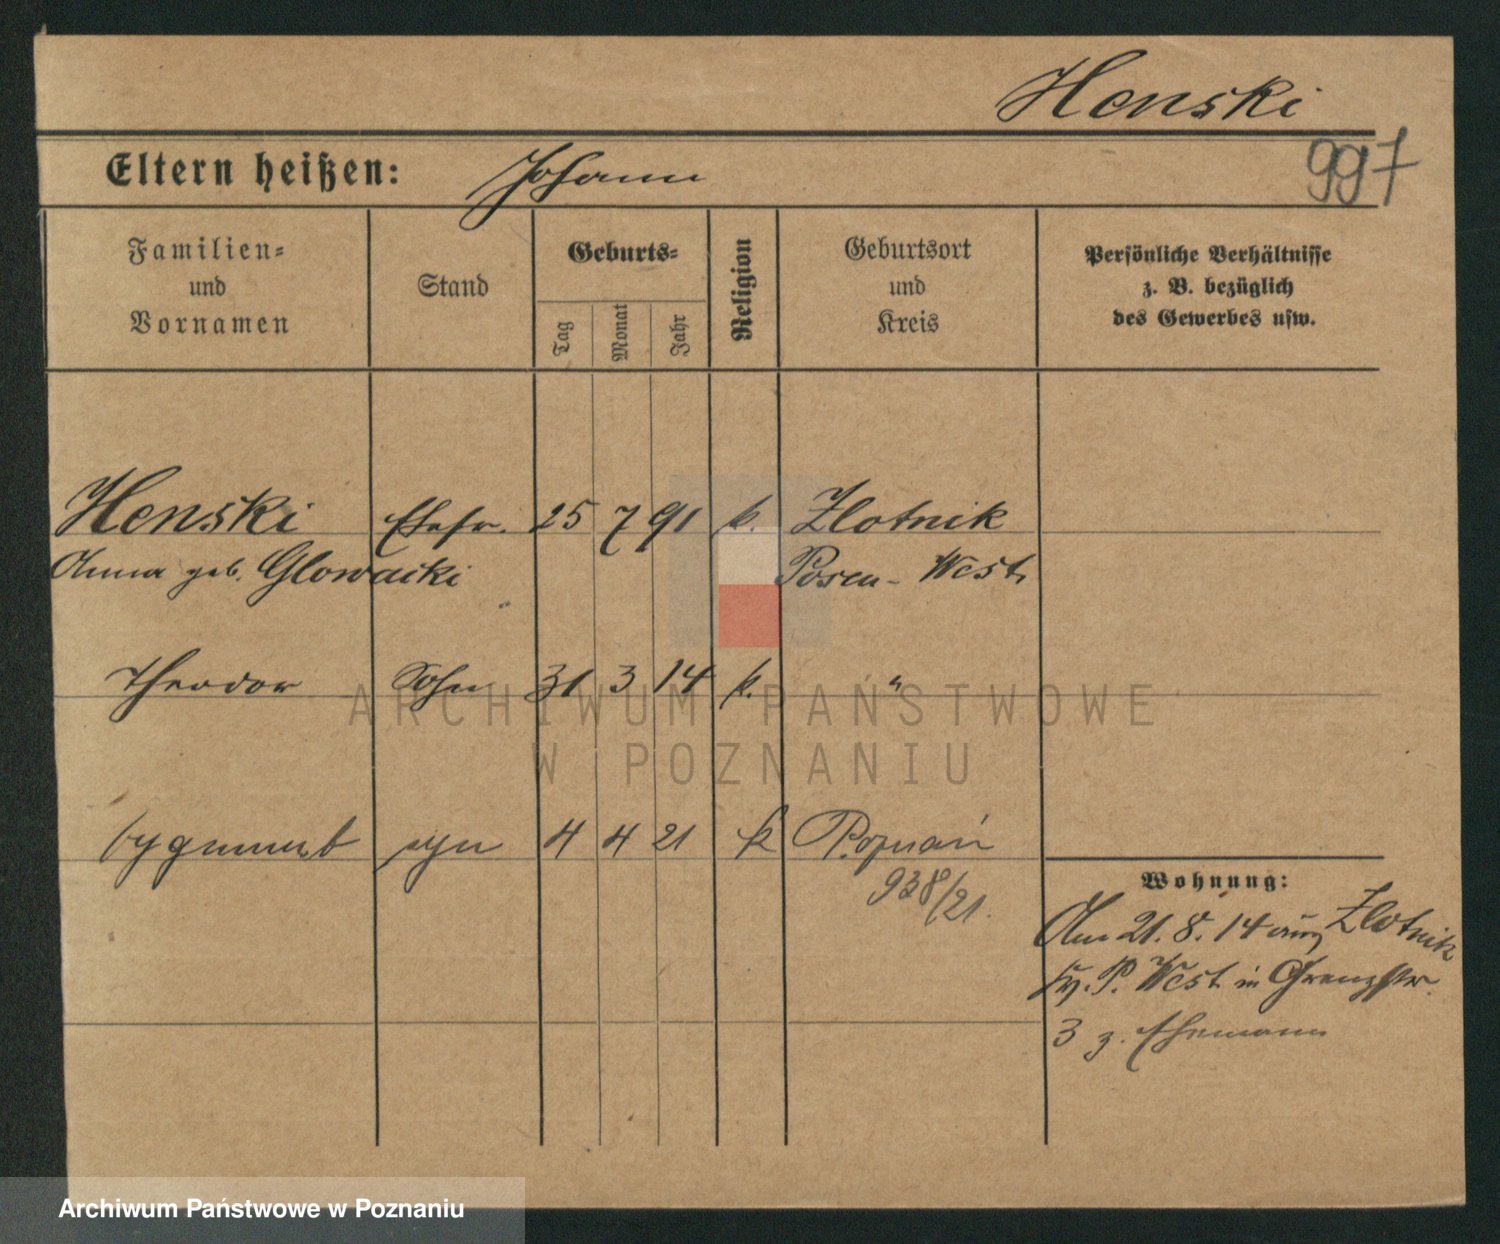 Henski
997
Eltern heißen: Johann
Familien= und Vornamen
Stand
Geburts=
Tag
Monat
Jahr
Religion
Geburtsort und Kreis
Persönliche Verhältnisse z. B. bezüglich des Gewerbes usw.
Henski Ehefr. 25 7 91 k. Zlotnik
Anna geb. Glowacki Posen-West
Theodor Sohn 31 3 14 k. "
Zygmunt syn 4 4 21 k Poznań
938/21.
Wohnung:
Am 21.8.14 aus Zlotnik
P. West in Grenzstr.
3 z. Ehemann
ARCHIWUM PAŃSTWOWE
W POZNANIU
Archiwum Państwowe w Poznaniu